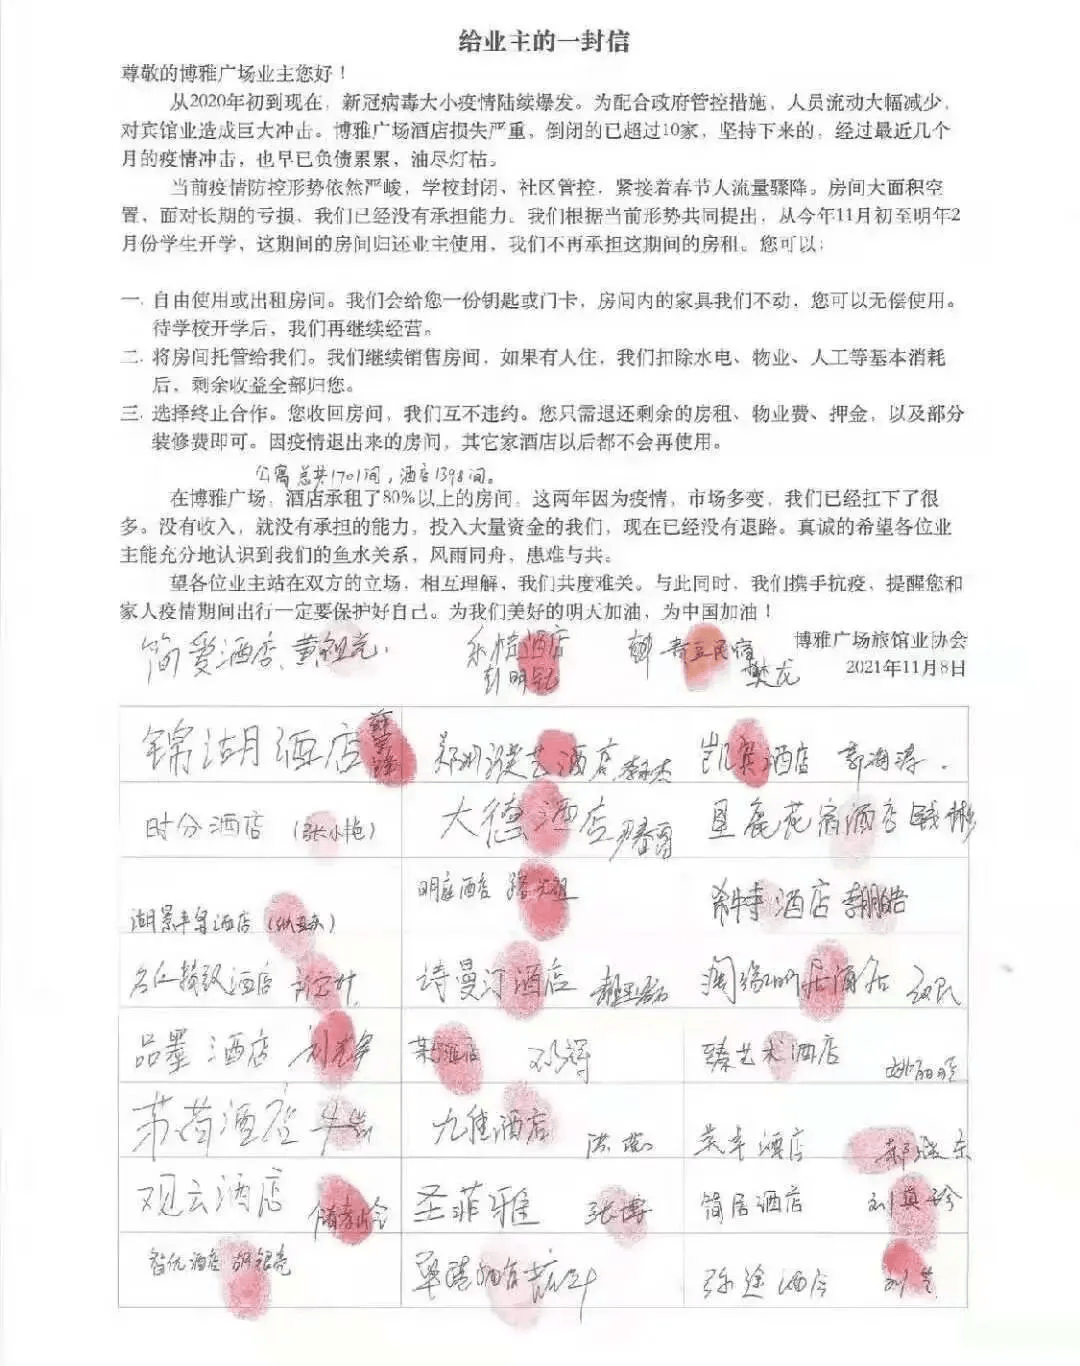 给业主的一封信
尊敬的博雅广场业主您好！
从2020年初到现在，新冠病毒大小疫情陆续爆发。为配合政府管控措施，人员流动大幅减少，
对宾馆业造成巨大冲击。博雅广场酒店损失严重，倒闭的已超过10家，坚持下来的，经过最近几个
月的疫情冲击，也早已负债累累，油尽灯枯。
当前疫情防控形势依然严峻，学校封闭、社区管控，紧接着春节人流量骤降。房间大面积空
置，面对长期的亏损，我们已经没有承担能力。我们根据当前形势共同提出，从今年11月初至明年2
月份学生开学，这期间的房间归还业主使用，我们不再承担这期间的房租。您可以：
一. 自由使用或出租房间。我们会给您一份钥匙或门卡，房间内的家具我们不动，您可以无偿使用。
待学校开学后，我们再继续经营。
二. 将房间托管给我们。我们继续销售房间，如果有人住，我们扣除水电、物业、人工等基本消耗
后，剩余收益全部归您。
三. 选择终止合作。您收回房间，我们互不违约。您只需退还剩余的房租、物业费、押金，以及部分
装修费即可。因疫情退出来的房间，其它家酒店以后都不会再使用。
公寓总共1701间，酒店1398间。
在博雅广场，酒店承租了80%以上的房间，这两年因为疫情，市场多变，我们已经扛下了很
多。没有收入，就没有承担的能力，投入大量资金的我们，现在已经没有退路。真诚的希望各位业
主能充分地认识到我们的鱼水关系，风雨同舟，患难与共。
望各位业主站在双方的立场，相互理解，我们共度难关。与此同时，我们携手抗疫，提醒您和
家人疫情期间出行一定要保护好自己。为我们美好的明天加油，为中国加油！
博雅广场旅馆业协会
2021年11月8日
简爱酒店 黄 酒店 彭明 民宿 樊龙
锦湖月酒店 郑州 艺酒店 凯宾酒店 郭海涛
时分酒店（张小艳） 大德酒店 花宿酒店
湖景 酒店 明庭酒店 希特酒店 李鹏皓
酒店 诗曼汀酒店 居酒店
品墨酒店 刘 邓 臻艺术酒店 姚丽
酒店 九佳酒店 洪 酒店 郝
观云酒店 圣菲雅 张博 简居酒店 刘真珍
智优酒店 胡银亮 弥途酒店 刘